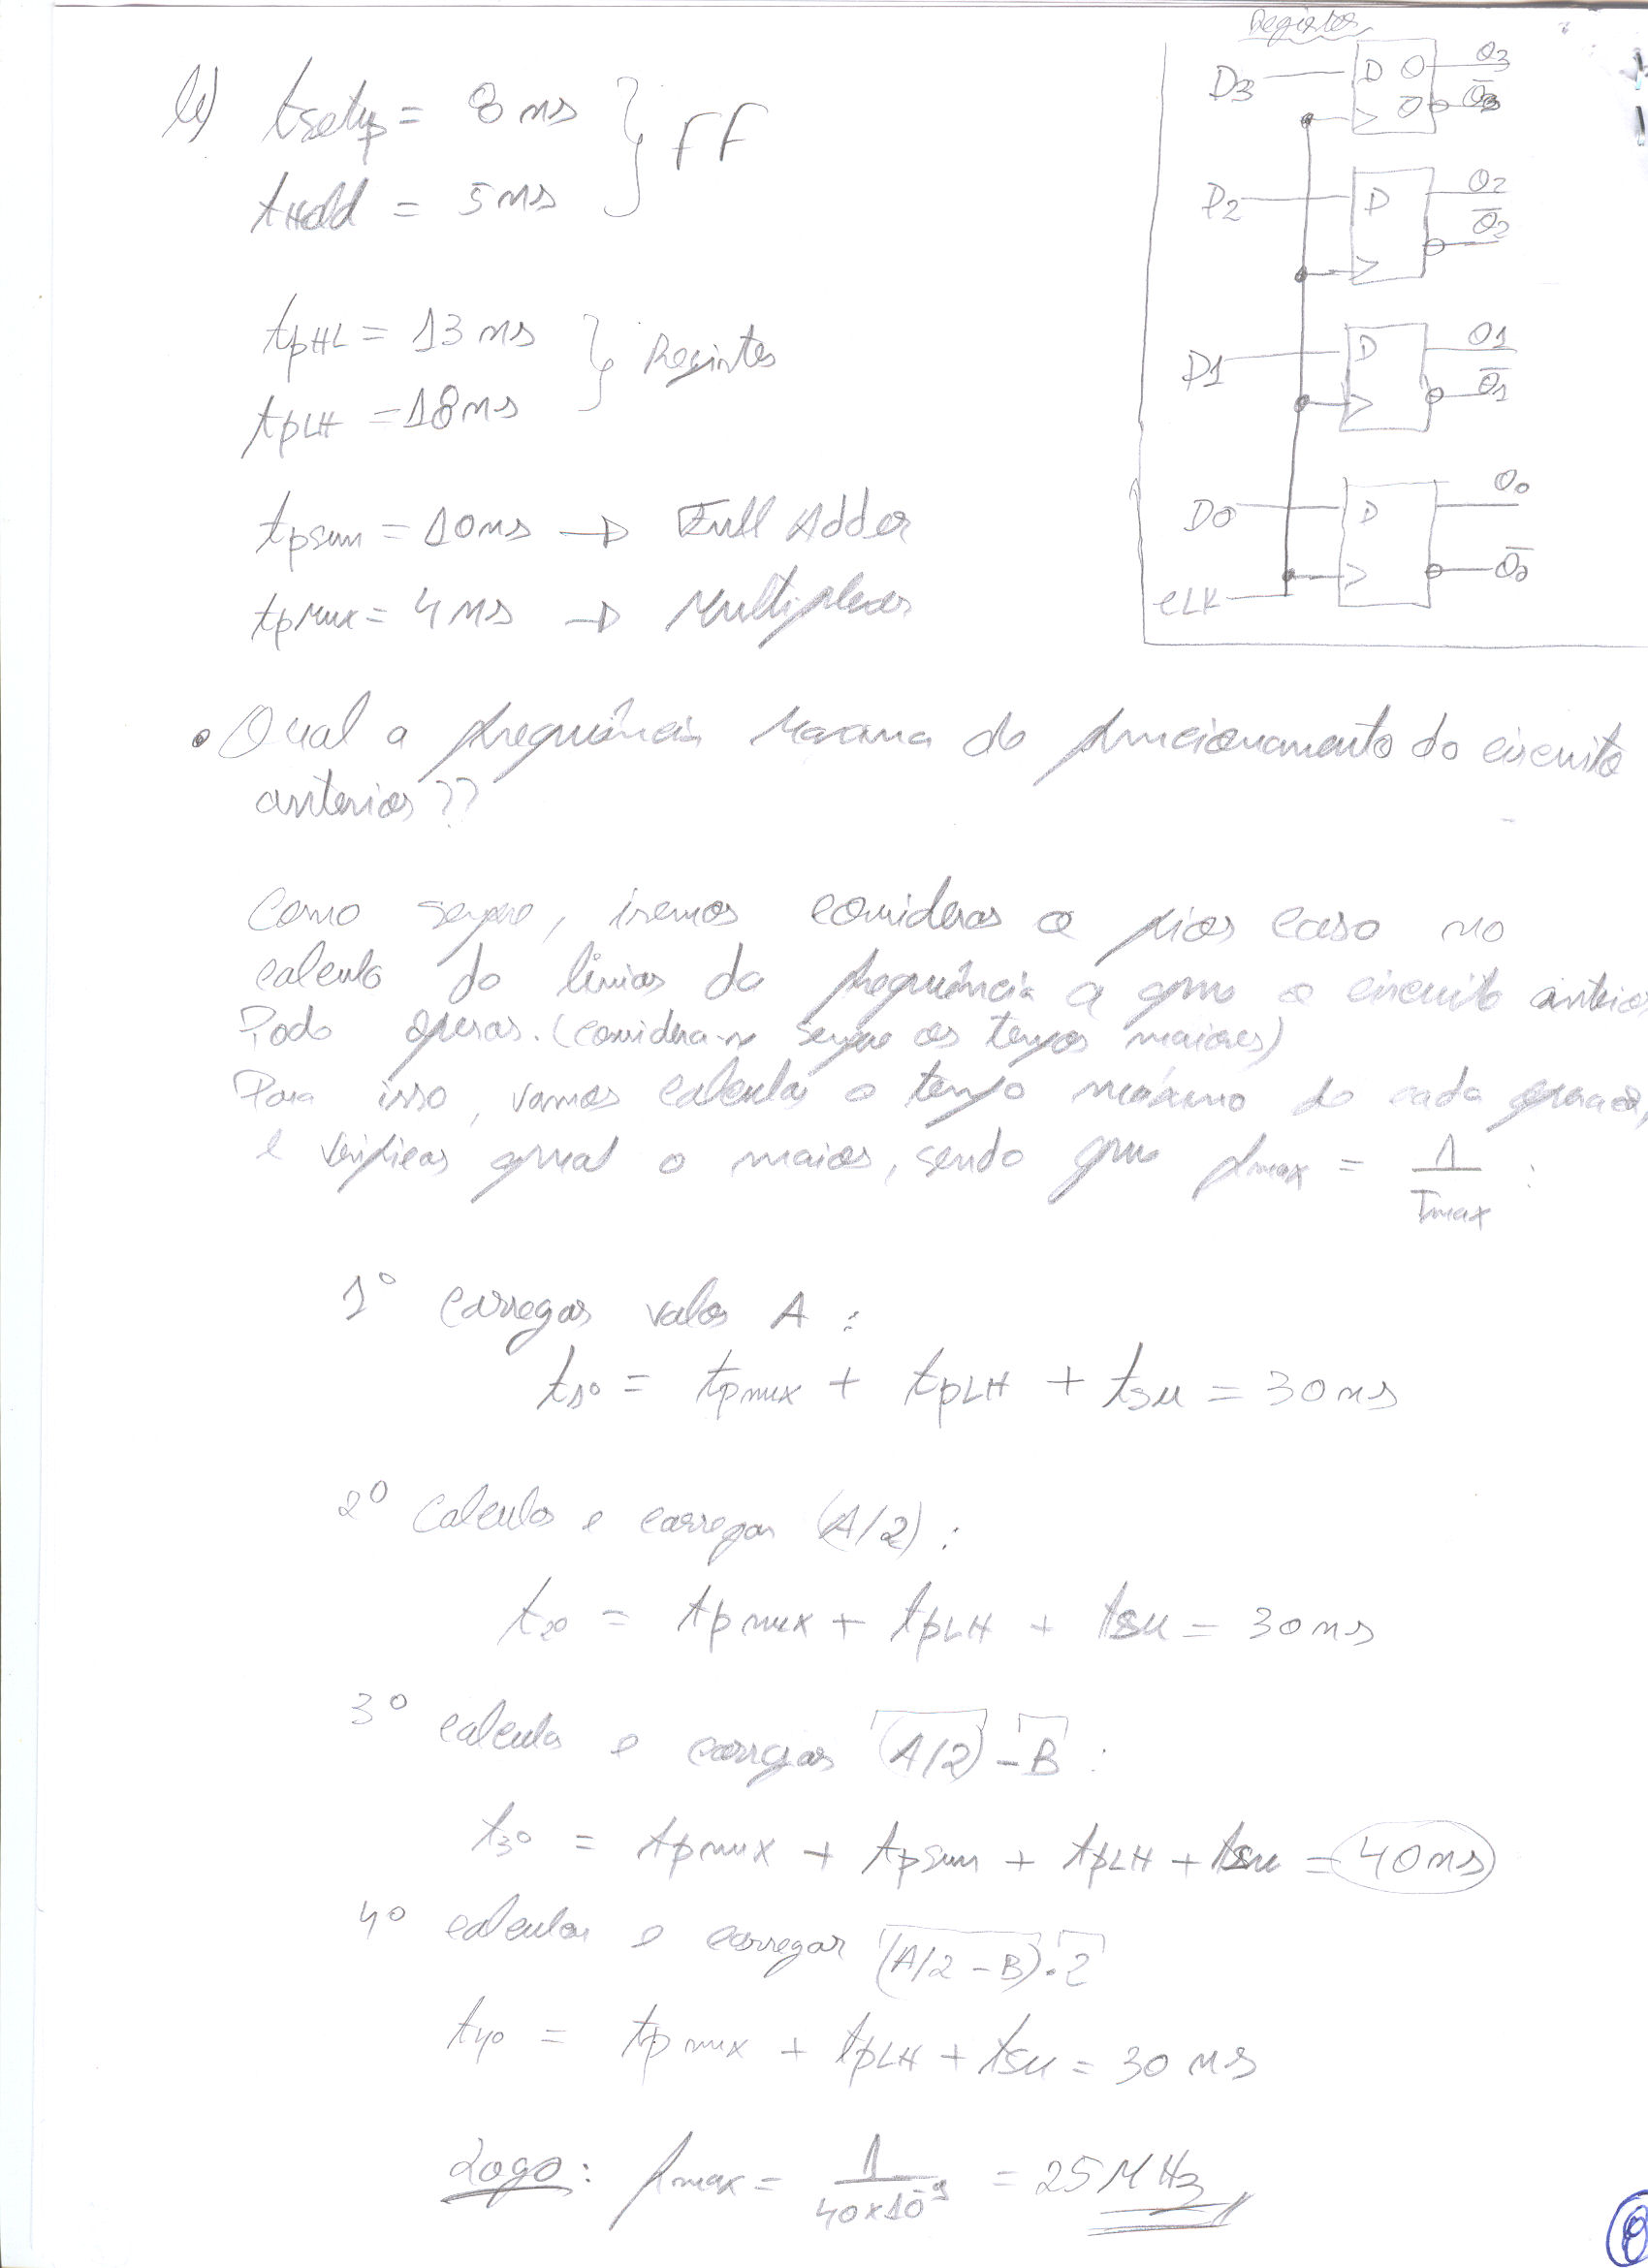 b) tsetup = 8 ns } FF
tHold = 5 ns
tpHL = 13 ns } Registos
tpLH = 18 ns
tpsum = 10 ns → Full Adder
tpMux = 4 ns → Multiplexer
Registos
D3 D Q Q3
Q̅ Q̅3
D2 D Q2
Q̅2
D1 D Q1
Q̅1
D0 D Q0
CLK Q̅0
• Qual a frequência maxima de funcionamento do circuito
anterior??
Como sempre, iremos considerar o pior caso no
calculo do limiar da frequência a que o circuito anterior
Pode operar. (considera-se sempre os tempos maiores)
Para isso, vamos calcular o tempo máximo de cada operação,
e verificar qual o maior, sendo que fmax = 1/Tmax :
1º Carregar valor A :
t1º = tpmux + tpLH + tsu = 30 ns
2º Calculos e carregar (A/2) :
t2º = tpmux + tpLH + tsu = 30 ns
3º calcula e carregar (A/2) - B :
t3º = tpmux + tpsum + tpLH + tsu = 40 ns
4º calcular e carregar (A/2 - B).2
t4º = tpmux + tpLH + tsu = 30 ns
Logo : fmax = 1/40x10⁻⁹ = 25 MHz